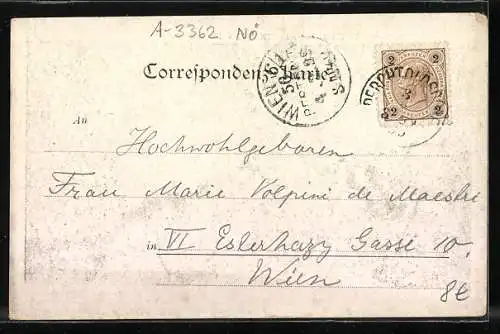 A-3362 NÖ
Correspondenz-Karte.
WIEN 6/1
56
2
2 2
An
Hochwohlgeboren
Frau Marie Volpini de Maestri
in VI Esterhazy Gasse 10,
Wien
8€